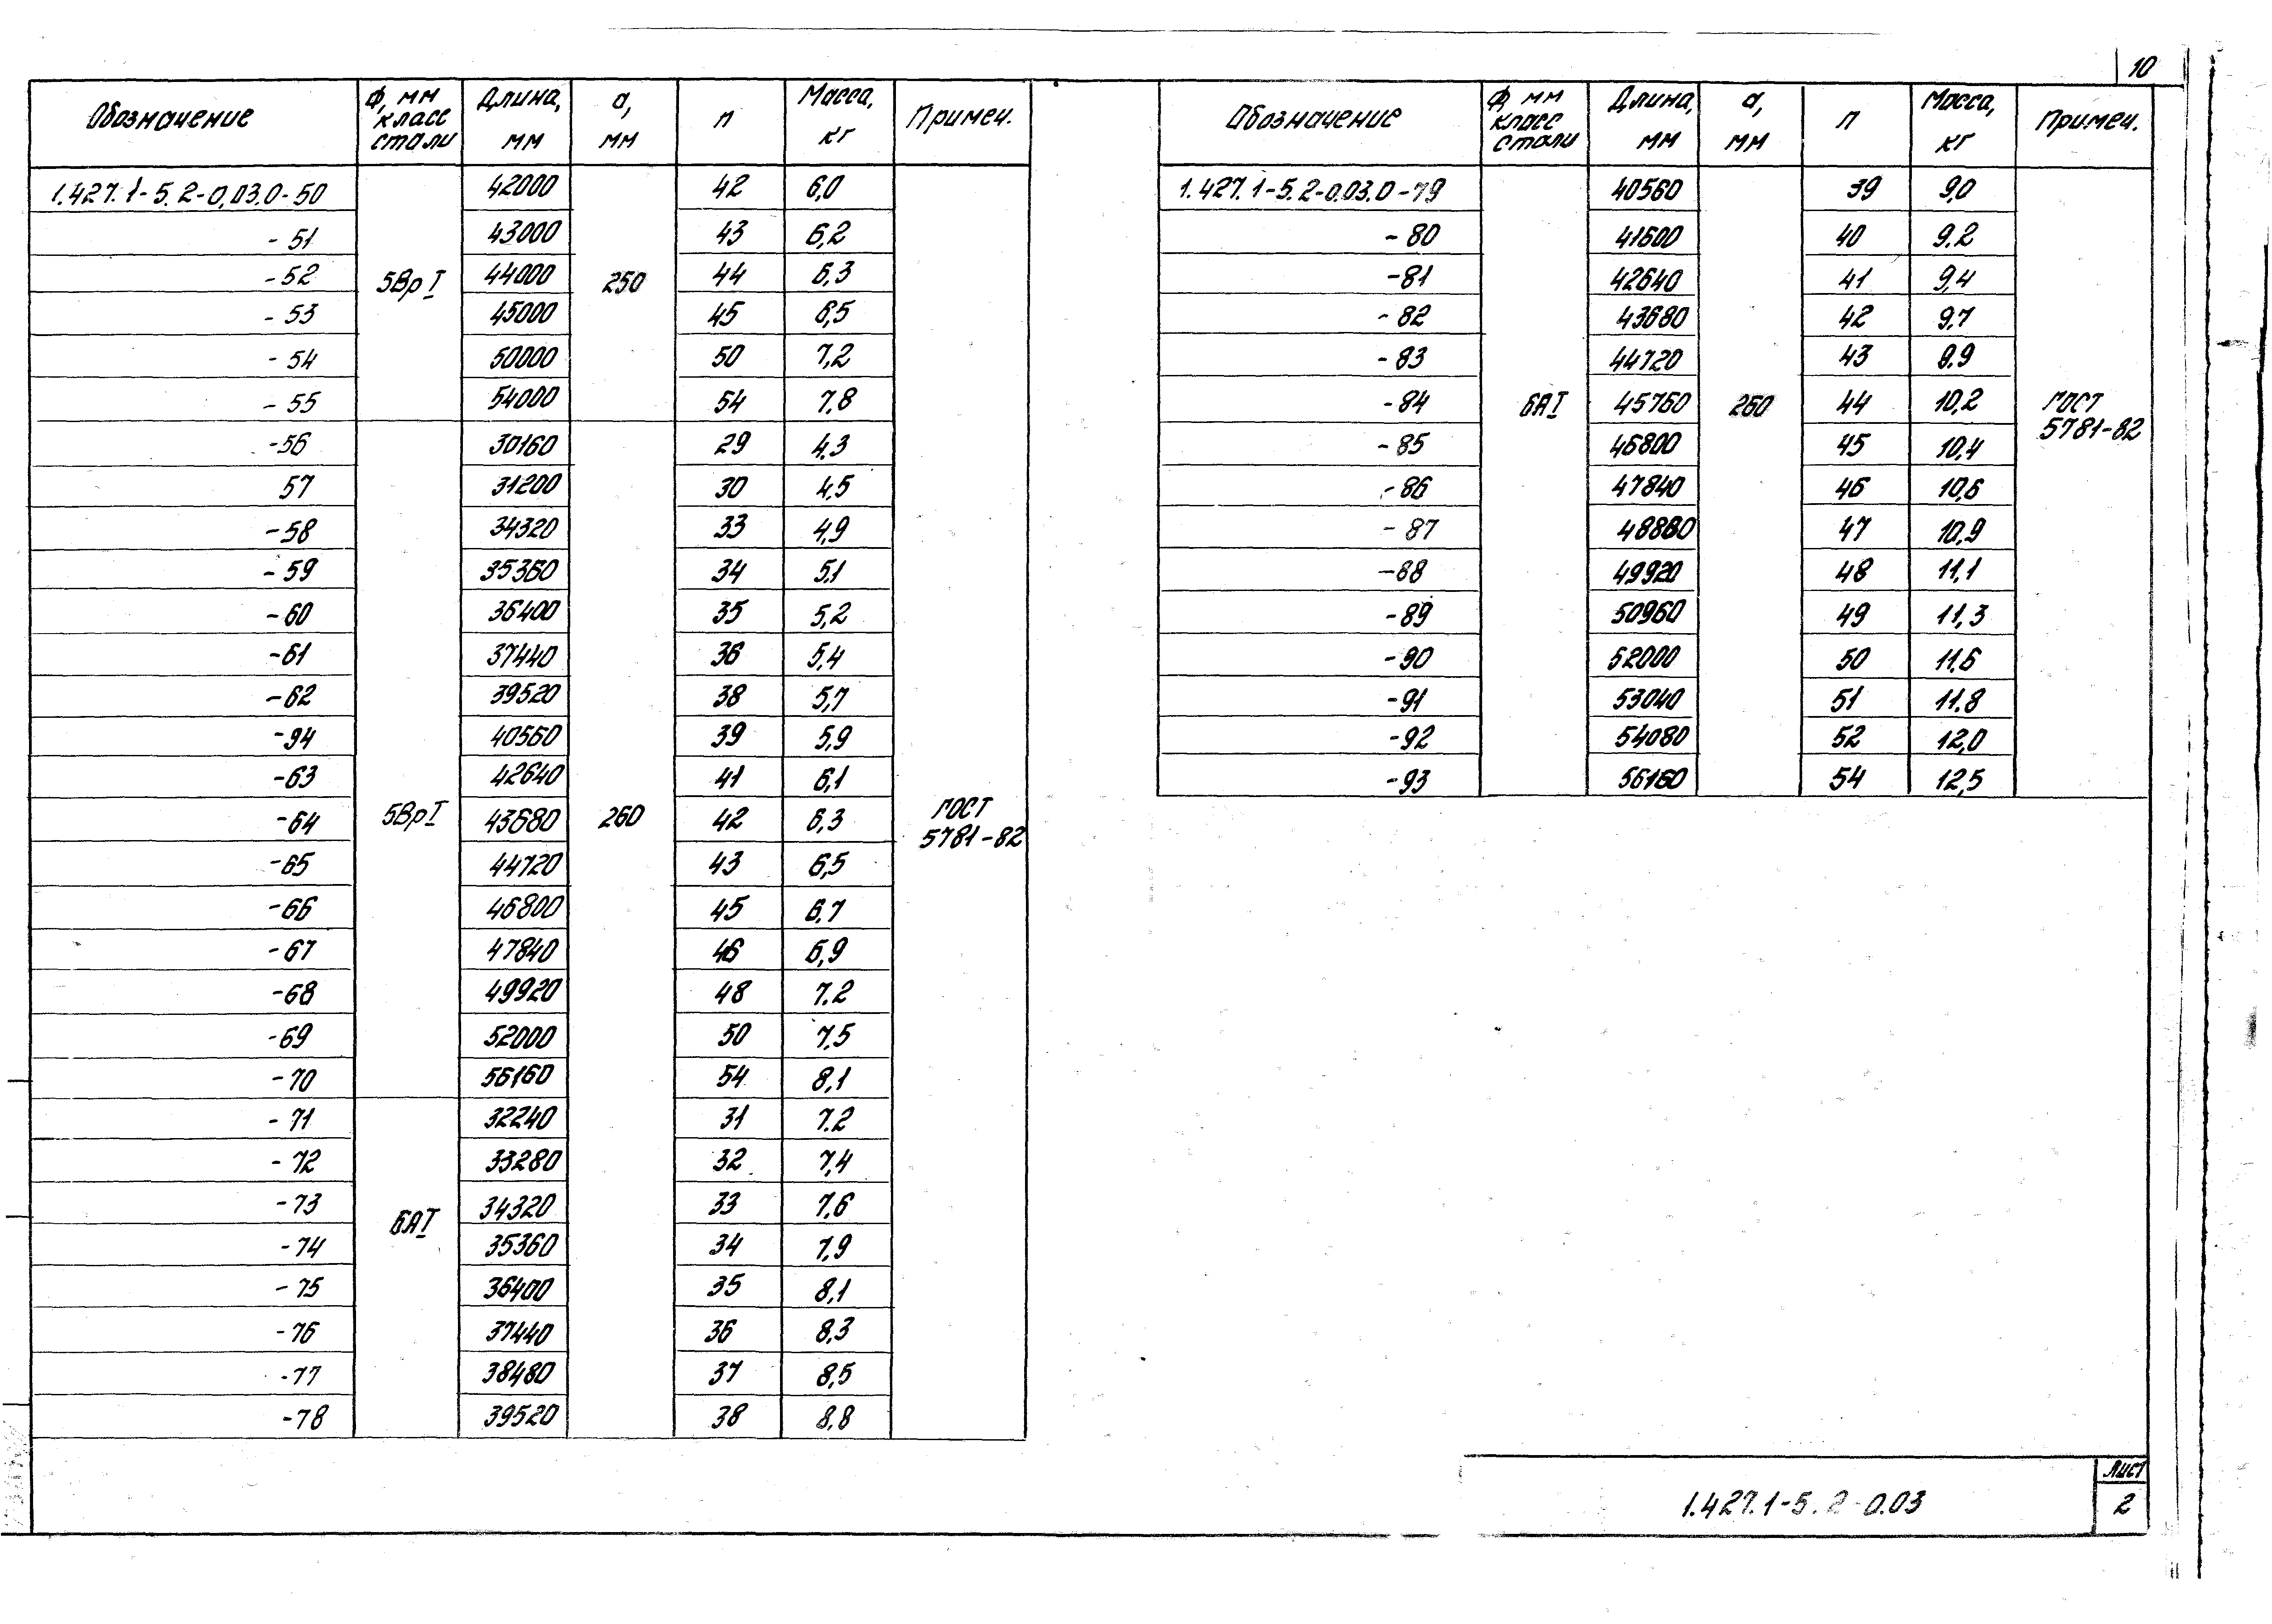 10
Обозначение Ф, мм класс стали Длина, мм а, мм n Масса, кг Примеч.
1.427.1-5.2-0,03.0-50 42000 42 6,0
-51 43000 43 6,2
-52 5ВрI 44000 250 44 6,3
-53 45000 45 6,5
-54 50000 50 7,2
-55 54000 54 7,8
-56 30160 29 4,3
57 31200 30 4,5
-58 34320 33 4,9
-59 35360 34 5,1
-60 36400 35 5,2
-61 37440 36 5,4
-62 39520 38 5,7
-94 40560 39 5,9
-63 42640 41 6,1
-64 5ВрI 43680 260 42 6,3 ГОСТ 5781-82
-65 44720 43 6,5
-66 46800 45 6,7
-67 47840 46 6,9
-68 49920 48 7.2
-69 52000 50 7,5
-70 56160 54 8,1
-71 32240 31 7.2
-72 33280 32 7,4
-73 6АI 34320 33 7,6
-74 35360 34 7,9
-75 36400 35 8,1
-76 37440 36 8,3
-77 38480 37 8,5
-78 39520 38 8,8
Обозначение Ф, мм класс стали Длина, мм а, мм n Масса, кг Примеч.
1.427.1-5.2-0.03.0-79 40560 39 9,0
-80 41600 40 9.2
-81 42640 41 9,4
-82 43680 42 9,7
-83 44720 43 9.9
-84 6АI 45760 260 44 10,2 ГОСТ 5781-82
-85 46800 45 10,4
-86 47840 46 10,6
-87 48880 47 10,9
-88 49920 48 11,1
-89 50960 49 11,3
-90 52000 50 11,6
-91 53040 51 11.8
-92 54080 52 12,0
-93 56160 54 12,5
1.427.1-5.2-0.03
Лист
2